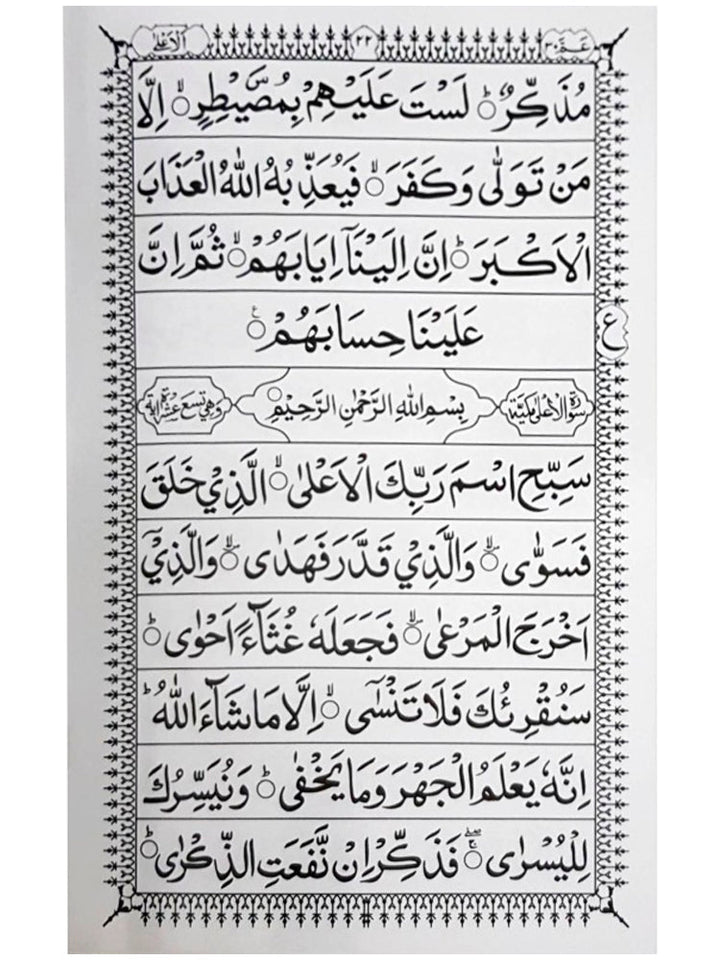 عَمَّ ٣٠ ٢٢ الاعلیٰ
مُذَكِّرٌ ؕ لَسْتَ عَلَيْهِمْ بِمُصَۜيْطِرٍ ۙ اِلَّا
مَنْ تَوَلّٰى وَكَفَرَ ۙ فَيُعَذِّبُهُ اللّٰهُ الْعَذَابَ
الْاَكْبَرَ ؕ اِنَّ اِلَيْنَاۤ اِيَابَهُمْ ۙ ثُمَّ اِنَّ
عَلَيْنَا حِسَابَهُمْ ع
ع
سورة الاعلى مكية بِسْمِ اللّٰهِ الرَّحْمٰنِ الرَّحِيْمِ وهي تسع عشرة اية
سَبِّحِ اسْمَ رَبِّكَ الْاَعْلٰى ۙ الَّذِيْ خَلَقَ
فَسَوّٰى ۙ وَالَّذِيْ قَدَّرَ فَهَدٰى ۙ وَالَّذِيْۤ
اَخْرَجَ الْمَرْعٰى ۙ فَجَعَلَهٗ غُثَآءً اَحْوٰى ؕ
سَنُقْرِئُكَ فَلَا تَنْسٰٓى ۙ اِلَّا مَا شَآءَ اللّٰهُ ؕ
اِنَّهٗ يَعْلَمُ الْجَهْرَ وَمَا يَخْفٰى ؕ وَنُيَسِّرُكَ
لِلْيُسْرٰى ۖۚ فَذَكِّرْ اِنْ نَّفَعَتِ الذِّكْرٰى ؕ